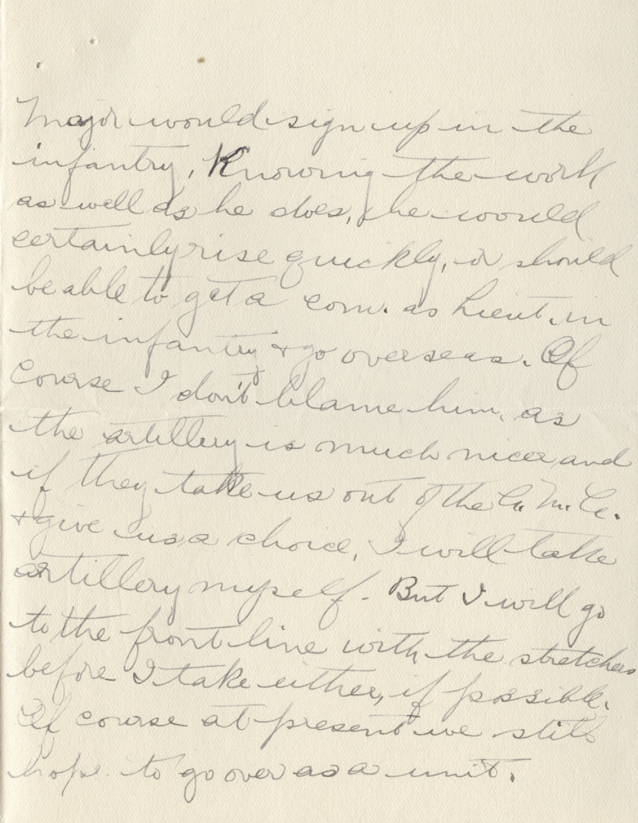 Major would sign up in the
infantry. Knowing the work
as well as he does, he would
certainly rise quickly, or should
be able to get a com. as Lieut. in
the infantry & go overseas. Of
course I don't blame him, as
the artillery is much nicer and
if they take us out of the
& give us a choice, I will take
artillery myself. But I will go
to the front line with the stretchers
before I take either, if possible.
Of course at present we still
hope to go over as a unit.